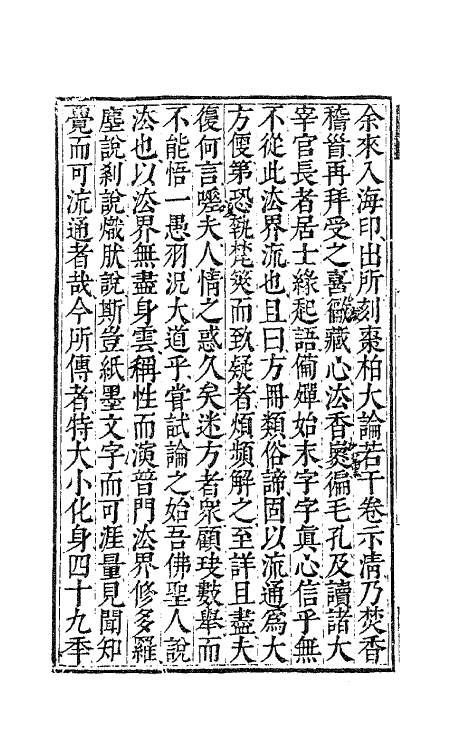 余來入海印出所刻棗柏大論若干卷示清乃焚香
稽首再拜受之喜識藏心泫香裛徧毛孔及讀諸大
宰官長者居士緣起語葡嬋始末字字真心信乎無
不從此泫界流也且曰方冊類俗諦固以流通爲大
方便第恐執梵筴而致疑者煩頻解之至詳且盡夫
復何言噯夫人情之惑久矣迷方者衆顧玦數舉而
不能悟一愚羽況大道乎嘗試論之始吾佛聖人說
泫也以泫界無盡身雲稱性而演普門泫界修多羅
塵說刹說熾肰說斯豈紙墨文字而可涯量見聞知
覺而可流通者哉今所傳者特大小化身四十九秊